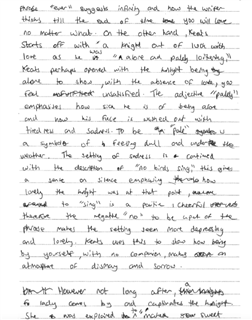 phrase "ever" suggests infinity and how the writer
thinks till the end of time you will love
no matter what. On the other hand, Keats
starts off with "a knight out of luck with
love as he was "alone and palely loitering"
Keats perhaps opened with the knight being
alone to show with the absence of love, you
feel unsatisfied. The adjective "palely"
emphasises how sick he is of being alone
and how his face is washed out with
tiredness and sadness. To be "pale"
a symbol of feeling dull and under the
weather. The setting of sadness is continued
with the description of "no birds sing" this gives
a sense on silence empowering how
lonely the knight was at that point,
to "sing" is a positive & cheerful
therefore the negative "no" to be upon the
phrase makes the setting seem more depressing
and lonely. Keats uses this to show how being
by yourself, with no companion, makes an
atmosphere of dismay and sorrow.
However not long after, a
lady comes by and captivates the knight.
She was explained to sweet